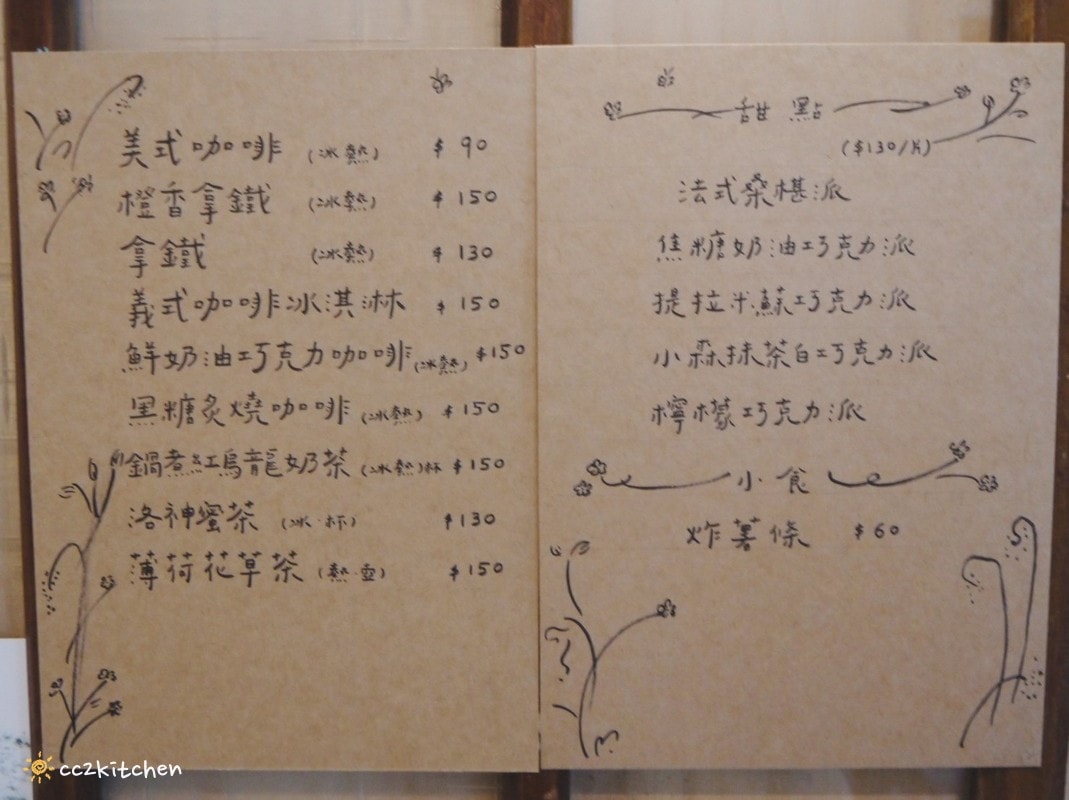 美式咖啡 (冰熱) $90
橙香拿鐵 (冰熱) $150
拿鐵 (冰熱) $130
義式咖啡冰淇淋 $150
鮮奶油巧克力咖啡 (冰熱) $150
黑糖炙燒咖啡 (冰熱) $150
鍋煮紅烏龍奶茶 (冰熱)杯 $150
洛神蜜茶 (冰·杯) $130
薄荷花草茶 (熱·壺) $150
甜點
($130/片)
法式桑椹派
焦糖奶油巧克力派
提拉米蘇巧克力派
小森抹茶白巧克力派
檸檬巧克力派
小食
炸薯條 $60
cc2kitchen